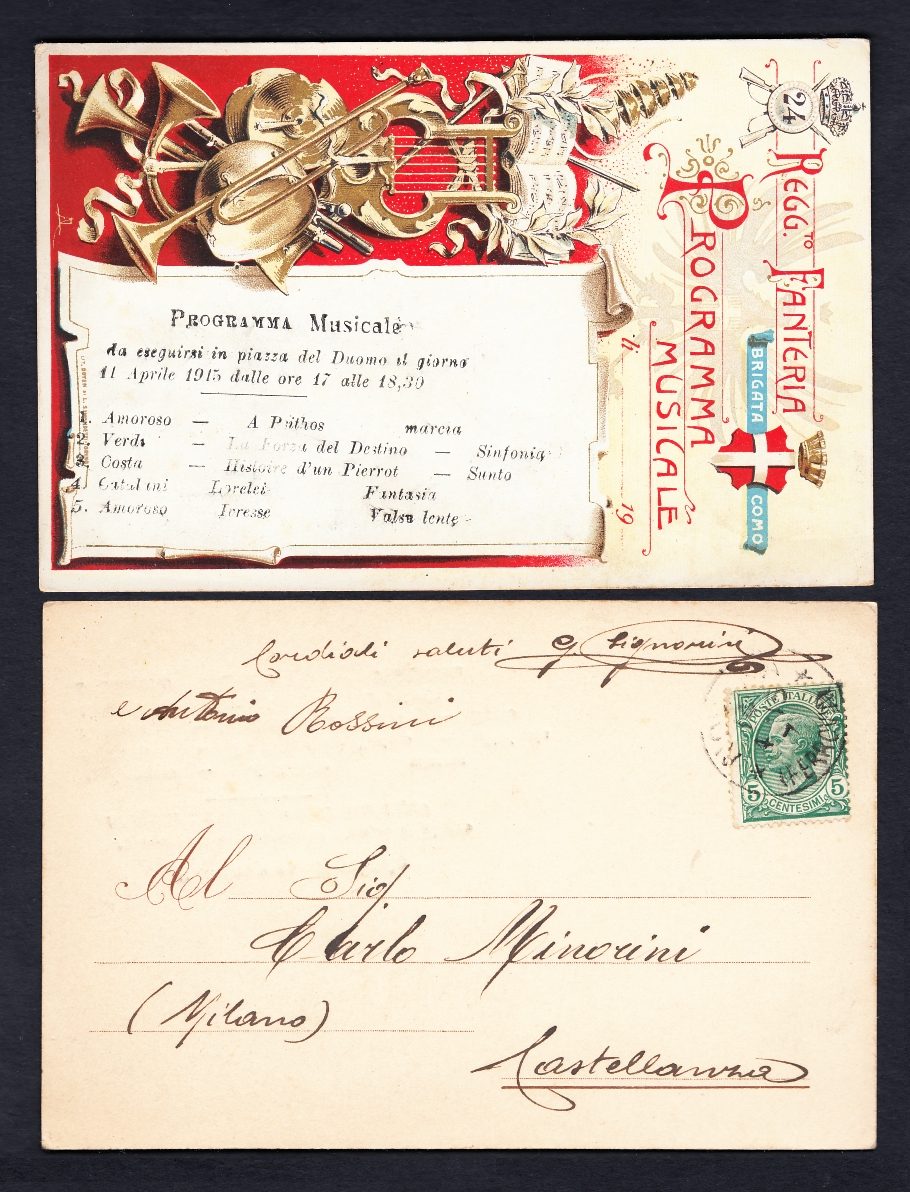 PROGRAMMA Musicale
da eseguirsi in piazza del Duomo il giorno
11 Aprile 1915 dalle ore 17 alle 18,30
1. Amoroso — A Pithos marcia
2. Verdi — La Forza del Destino — Sinfonia
3. Costa — Histoire d'un Pierrot — Sunto
4. Catalani Lorelei Fantasia
5. Amoroso Ivresse Valse lente
24
REGG.TO FANTERIA
PROGRAMMA
MUSICALE
li 19
BRIGATA COMO
Cordiali saluti G Signorini
e Antonio Rossini
POSTE ITALIANE
5 CENTESIMI 5
Al Sig
Carlo Minorini
(Milano)
Castellanza